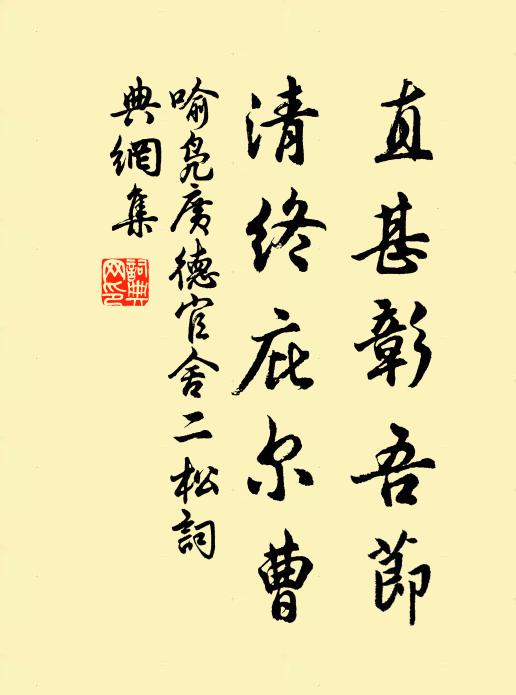 直甚彰吾節
清終庇尔曹
喻凫廣德官舍二松詞
典網集
詞典
网印